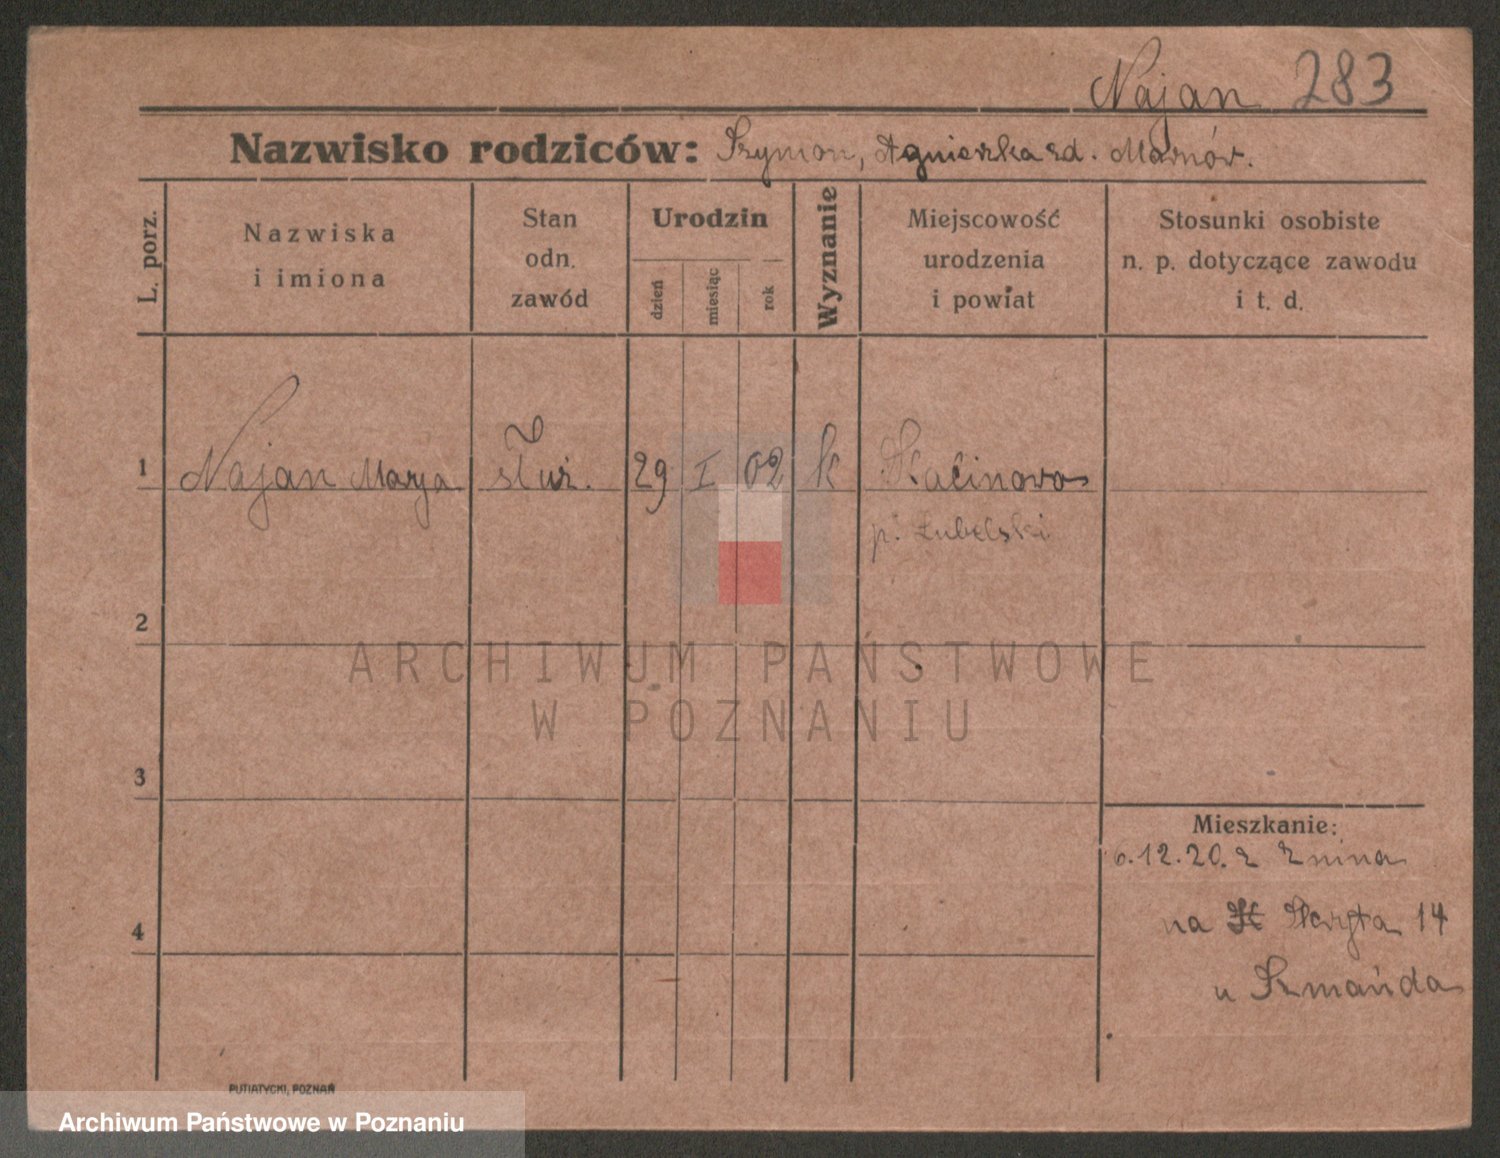 Najan 283
Nazwisko rodziców: Szymon, Agnieszka zd.
L. porz.
Nazwiska
i imiona
Stan
odn.
zawód
Urodzin
dzień
miesiąc
rok
Wyznanie
Miejscowość
urodzenia
i powiat
Stosunki osobiste
n. p. dotyczące zawodu
i t. d.
1 Najan Marya służ. 29 I 02 k
p. Lubelski
2
ARCHIWUM PAŃSTWOWE
W POZNANIU
3
Mieszkanie:
6.12.20. z Znina
4
na Skryta 14
u Szmańda
PUTIATYCKI, POZNAŃ
Archiwum Państwowe w Poznaniu